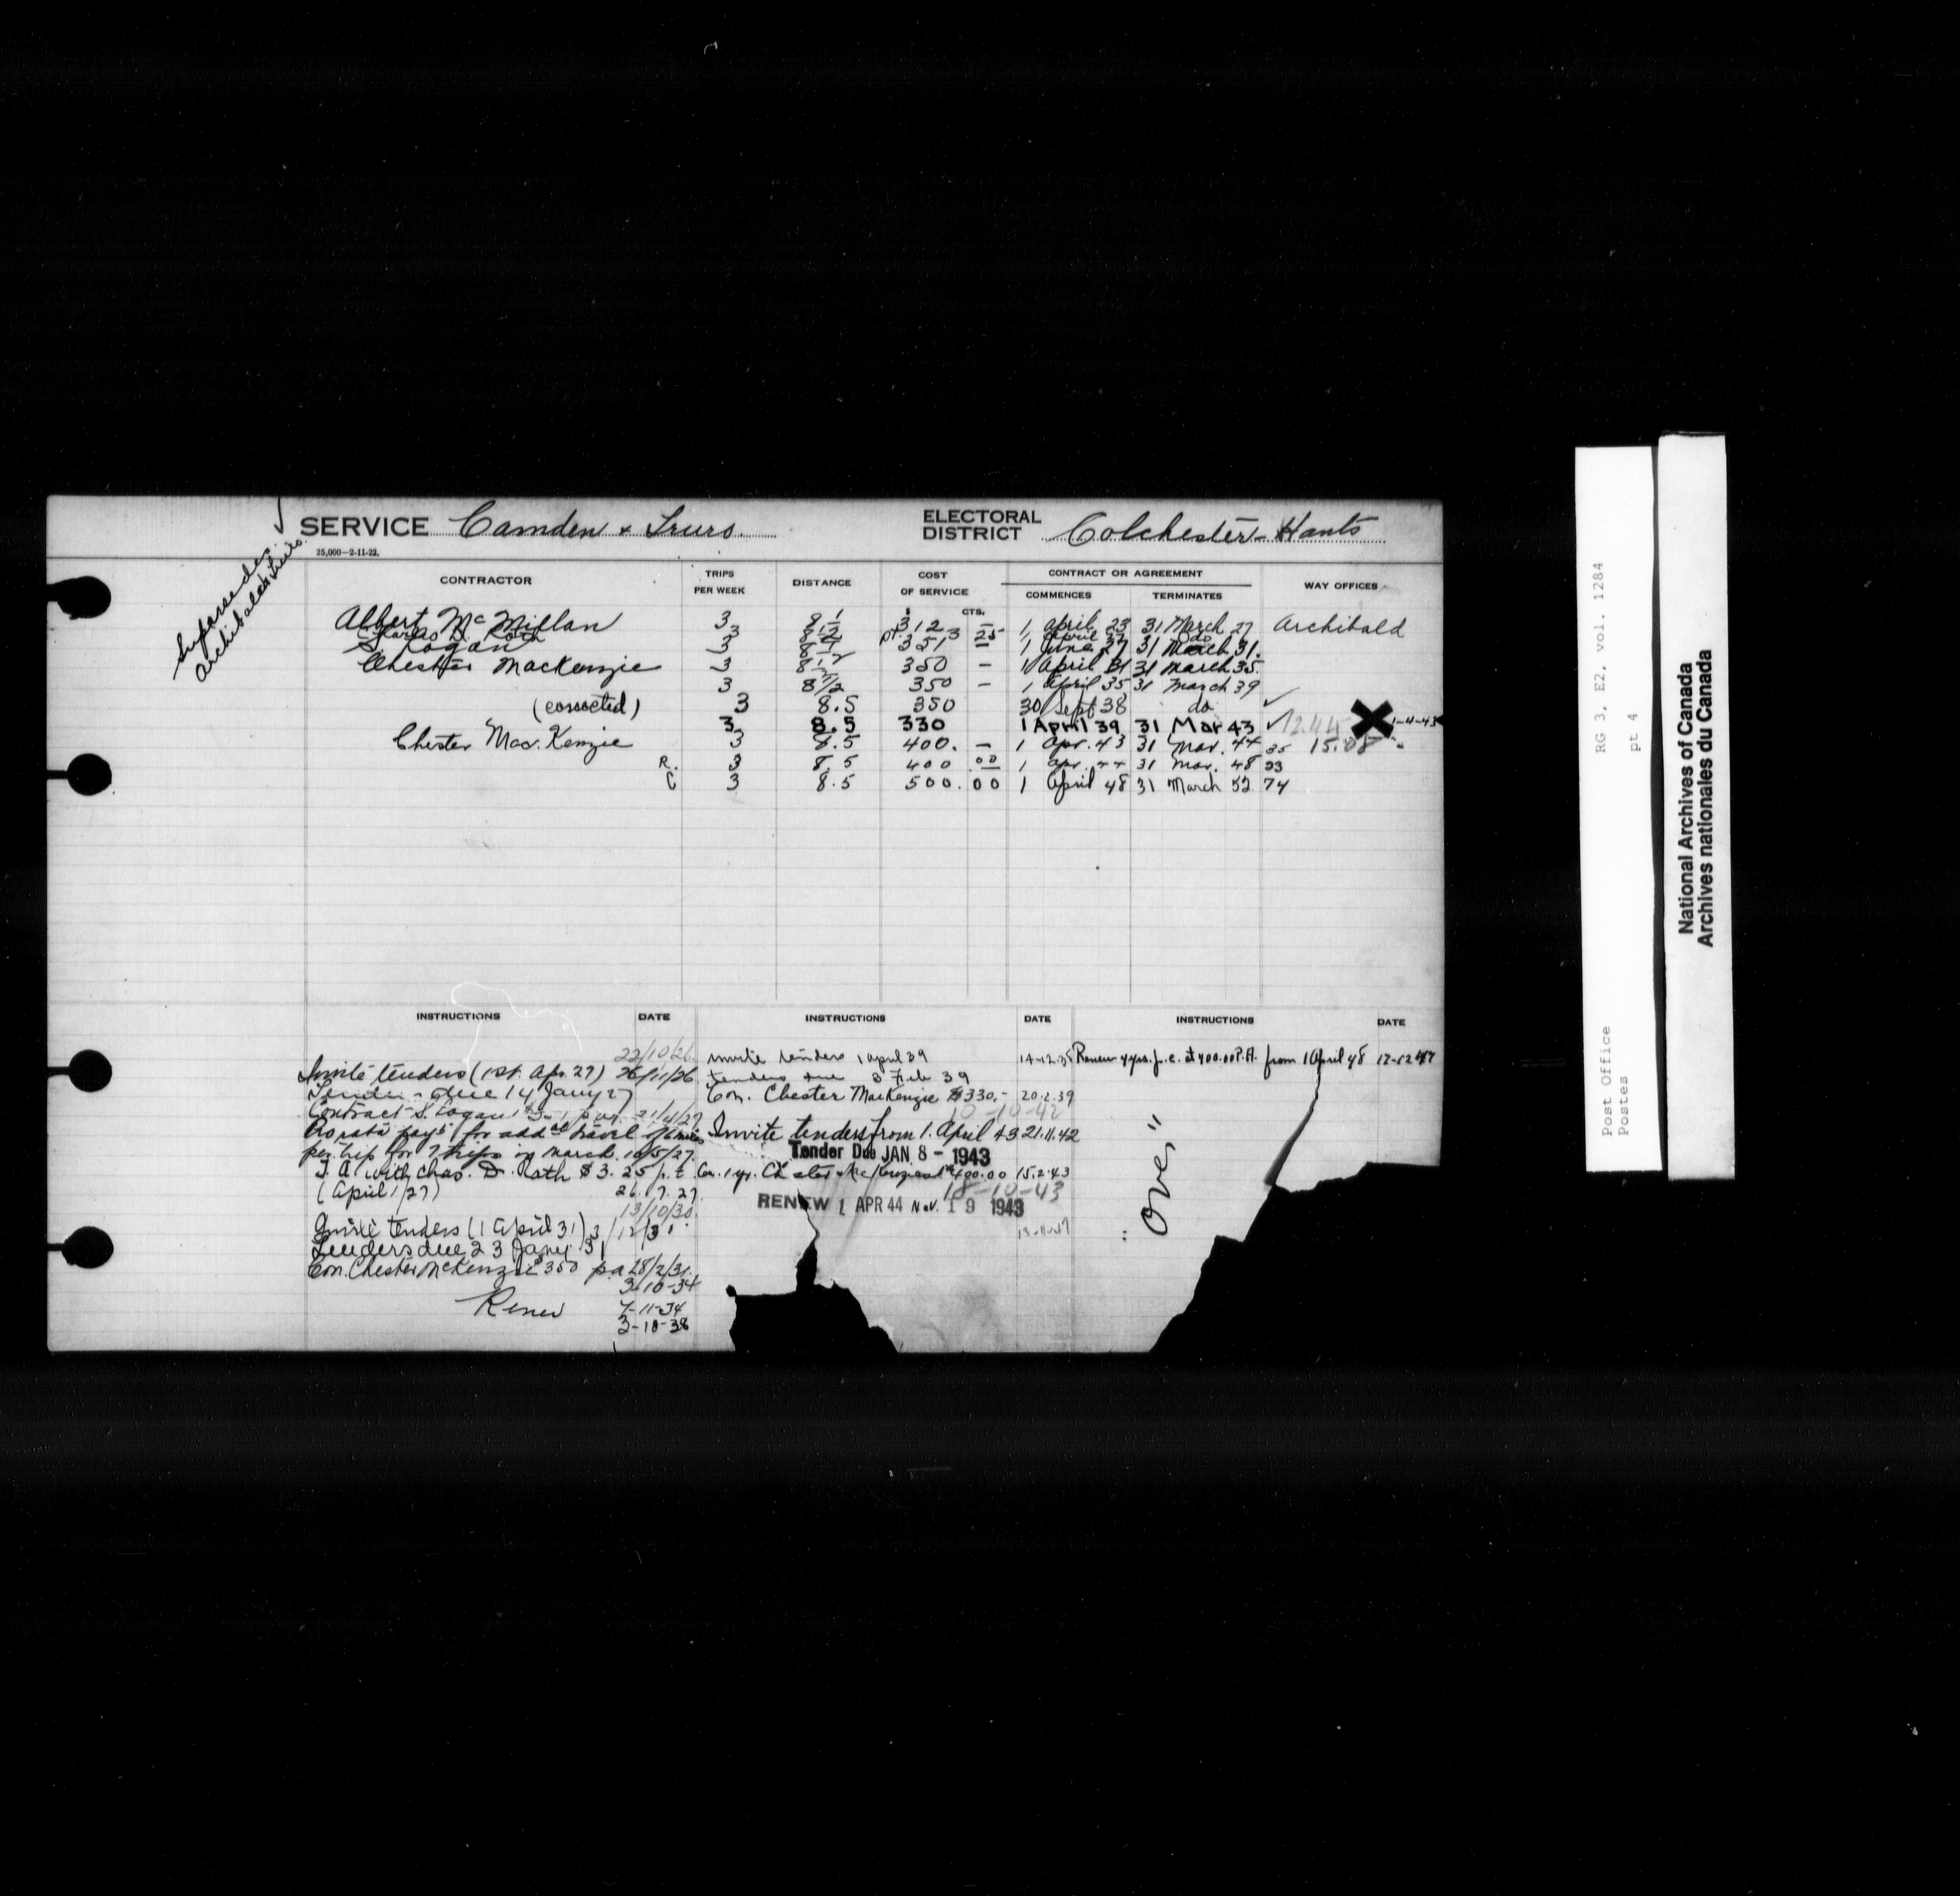 SERVICE Camden & Truro.
ELECTORAL DISTRICT Colchester-Hants
25,000—2-11-22.
Supersedes
Archibald & Truro
CONTRACTOR TRIPS PER WEEK DISTANCE COST OF SERVICE CONTRACT OR AGREEMENT WAY OFFICES
$ CTS. COMMENCES TERMINATES
Albert McMillan 3 8½ 312 — 1 April 23 31 March 27 Archibald
Charles D. Roth 3 8½ pt. 3 25 1 April 27 do
S. Logan 3 8½ 351 — 1 June 27 31 March 31.
Chester MacKenzie 3 8½ 350 — 1 April 31 31 March 35
3 8½ 350 — 1 April 35 31 March 39
(corrected) 3 8.5 350 30 Sept 38 do ✓
3 8.5 330 1 April 39 31 Mar 43 ✓ 12.44 X 1-4-43
Chester Mac. Kenzie 3 8.5 400. — 1 Apr. 43 31 Mar. 44 35 15.08
R. 3 8.5 400 00 1 Apr. 44 31 Mar. 48 23
C 3 8.5 500.00 1 April 48 31 March 52 74
INSTRUCTIONS DATE INSTRUCTIONS DATE INSTRUCTIONS DATE
22/10/26.
Invite tenders (1st. Apr. 27) 26/11/26
Tenders due 14 Jany 27
Contract S. Logan 21/4/27
Pro rata payt for addnl travel
per trip for 7 trips in March. 10/5/27.
T.A. with Chas. D. Roth $3.25 p.t.
(April 1/27) 26.7.27.
13/10/30.
Invite tenders (1 April 31) 3/12/3
Tenders due 23 Jany 31
Con. Chester McKenzie $350 p.a 28/2/31.
3-10-34
Renew 7-11-34
3-10-38
Invite tenders 1 April 39 14-12-38
tenders due 3 Feb 39
Con. Chester MacKenzie $330.- 20.2.39
10-10-42
Invite tenders from 1. April 43 21.11.42
Tender Due JAN 8 - 1943
Con. 1 yr. Chester McKenzie at $400.00 15.2.43
18-10-43
RENEW 1 APR 44 Nov. 19 1943
Renew 4 yrs. J.C. at 400.00 P.A. from 1 April 48 12-12-47
"Over"
RG 3, E2, vol. 1284
pt 4
Post Office
Postes
National Archives of Canada
Archives nationales du Canada